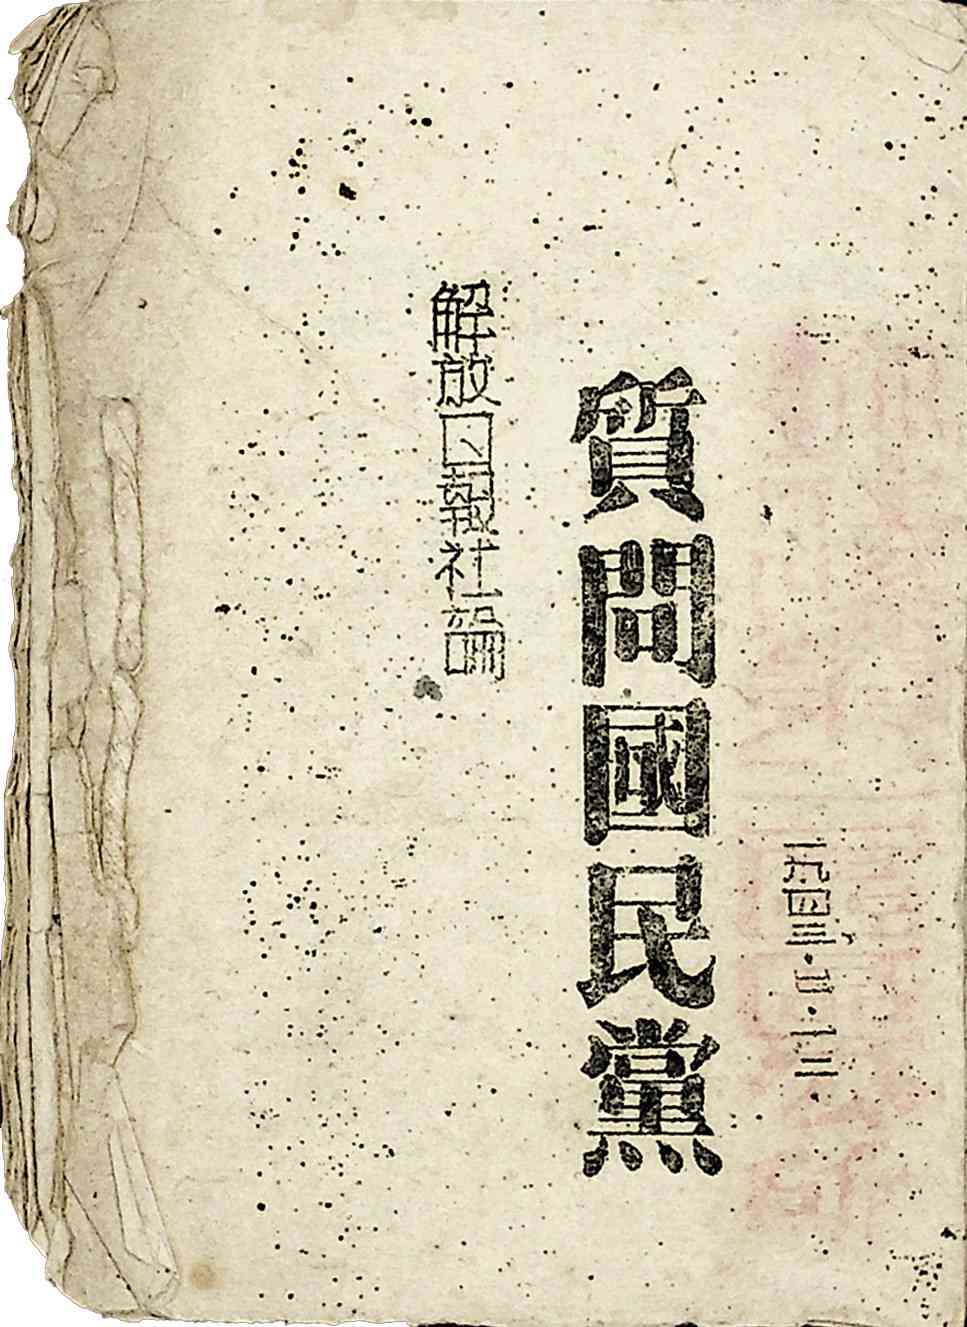 一九四三
質問國民黨
解放日報社論